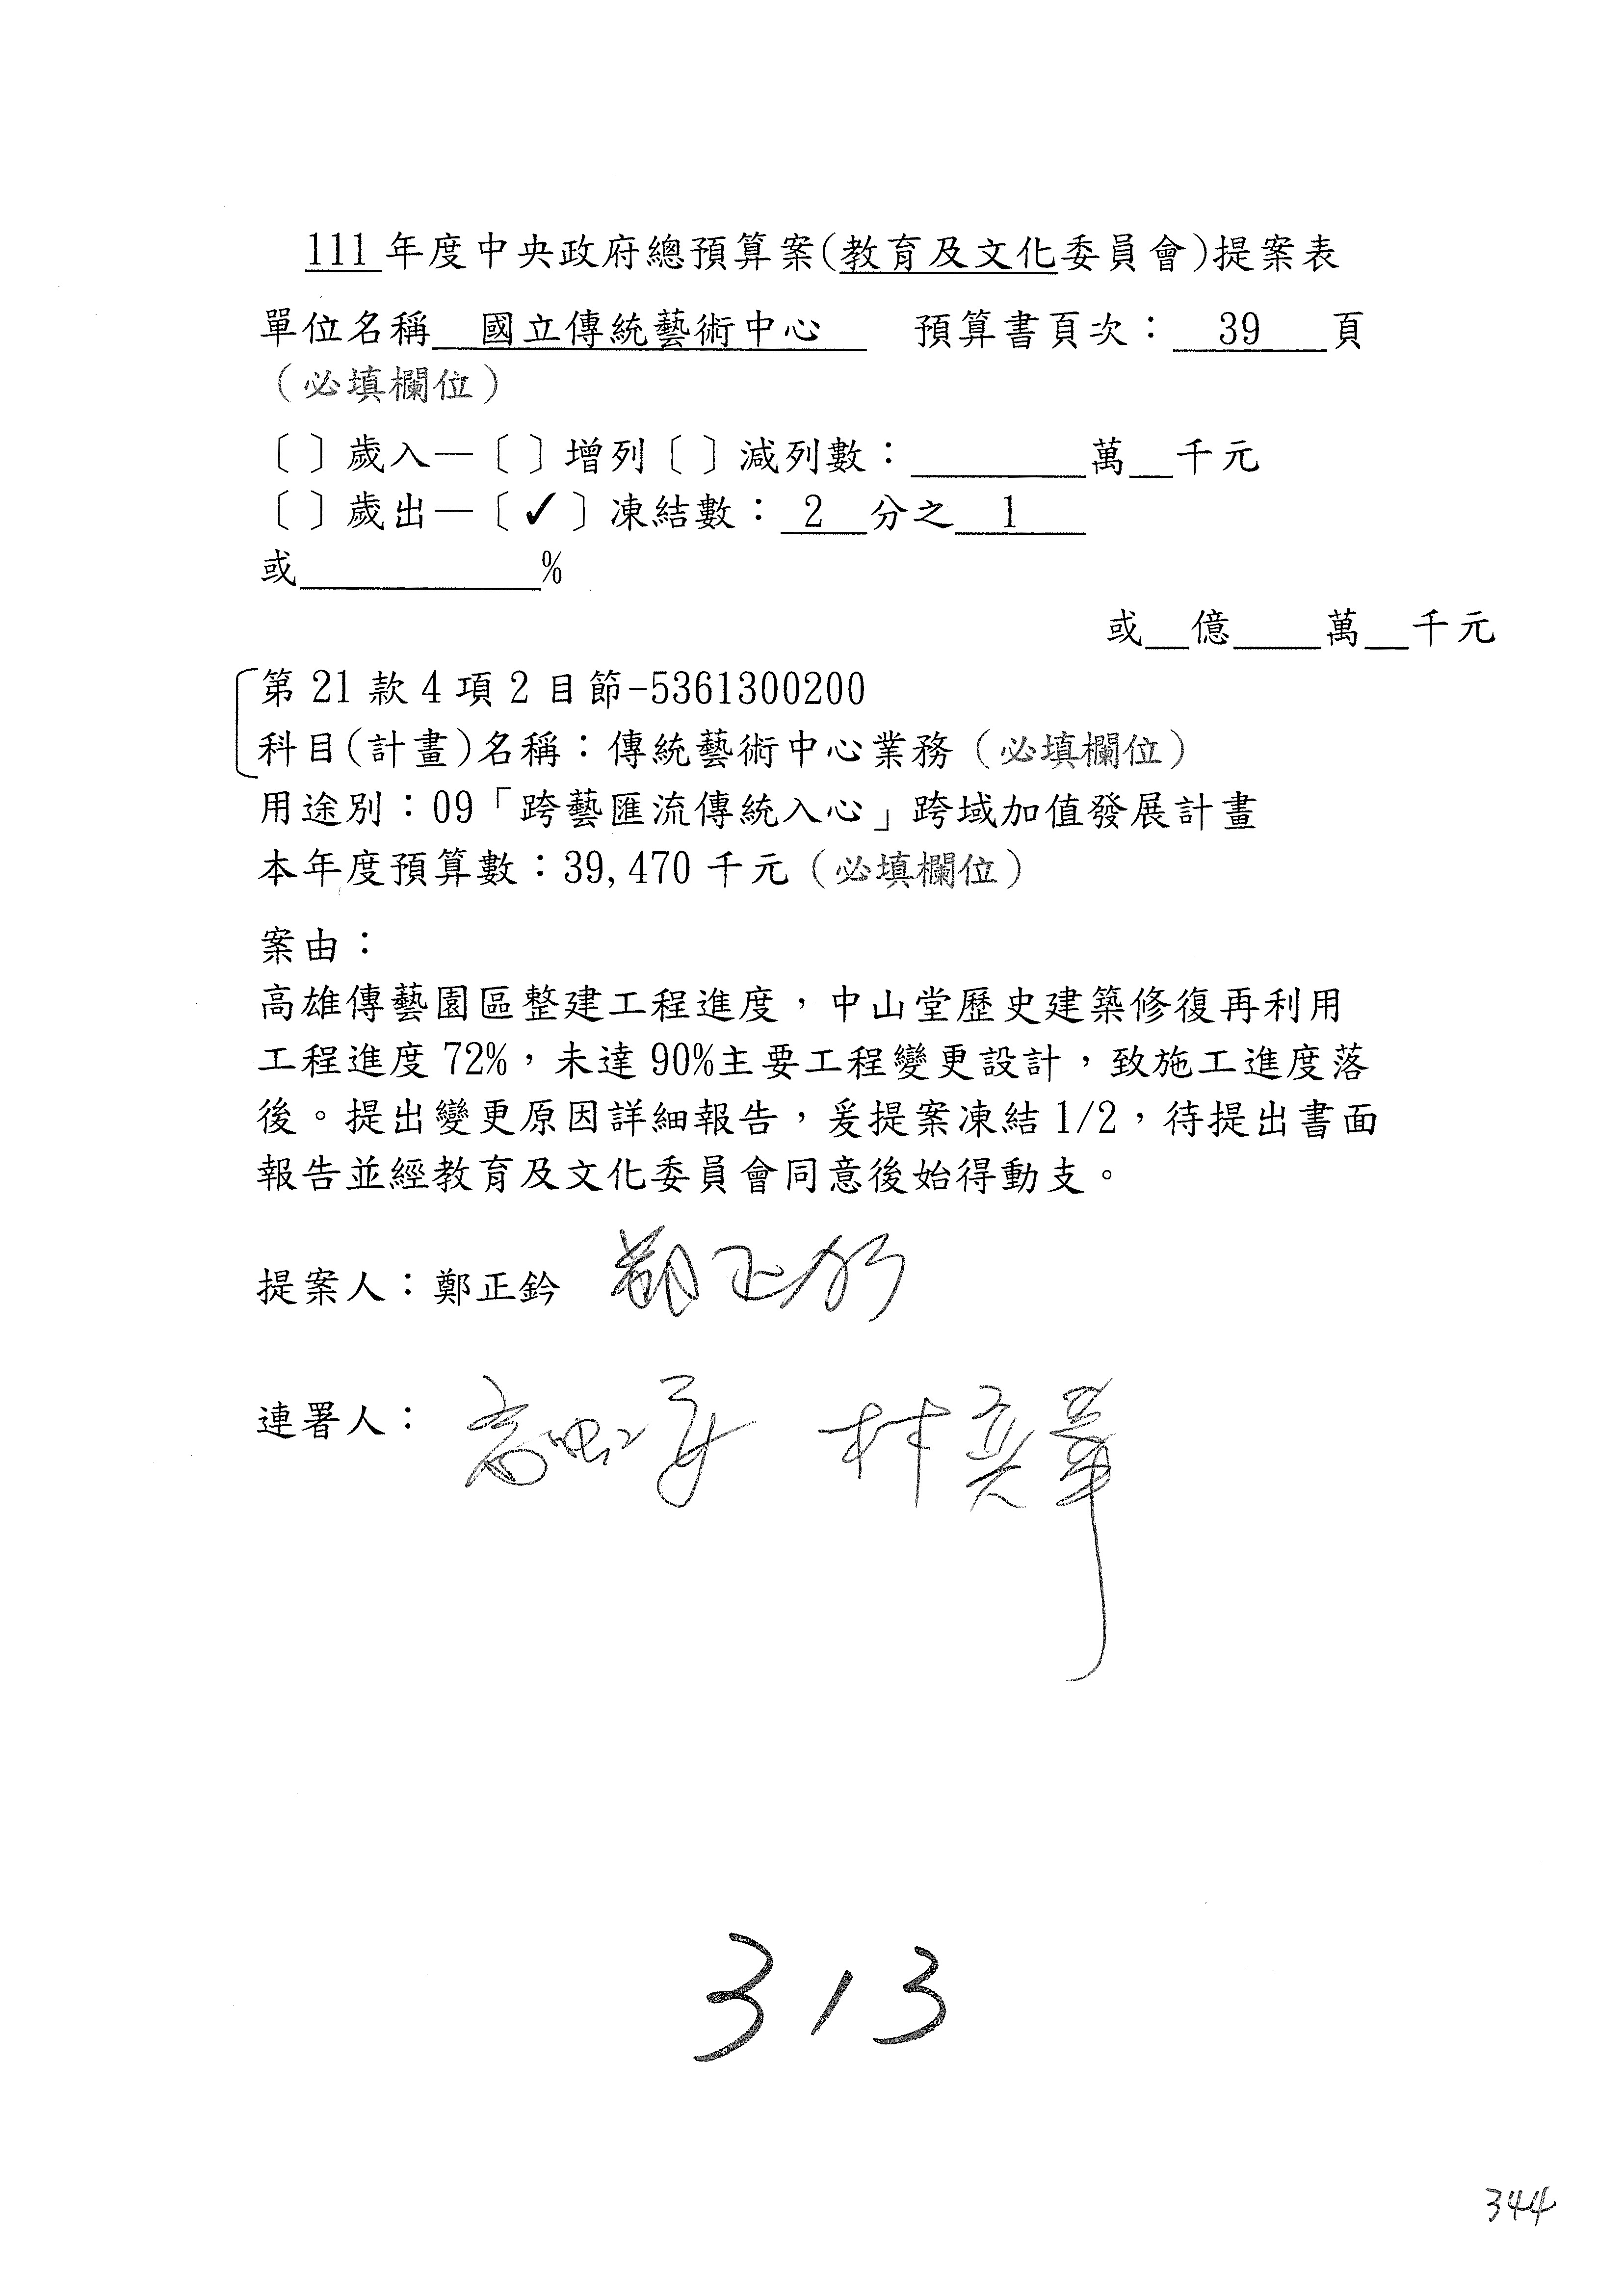 111年度中央政府總預算案(教育及文化委員會)提案表
單位名稱 國立傳統藝術中心 預算書頁次： 39 頁
（必填欄位）
〔 〕歲入—〔 〕增列〔 〕減列數：________萬__千元
〔 〕歲出—〔✓〕凍結數： 2 分之 1
或___________%
或__億____萬__千元
第 21 款 4 項 2 目節-5361300200
科目(計畫)名稱：傳統藝術中心業務（必填欄位）
用途別：09「跨藝匯流傳統入心」跨域加值發展計畫
本年度預算數：39,470 千元（必填欄位）
案由：
高雄傳藝園區整建工程進度，中山堂歷史建築修復再利用
工程進度 72%，未達 90%主要工程變更設計，致施工進度落
後。提出變更原因詳細報告，爰提案凍結 1/2，待提出書面
報告並經教育及文化委員會同意後始得動支。
提案人：鄭正鈐 鄭正鈐
連署人：
313
344